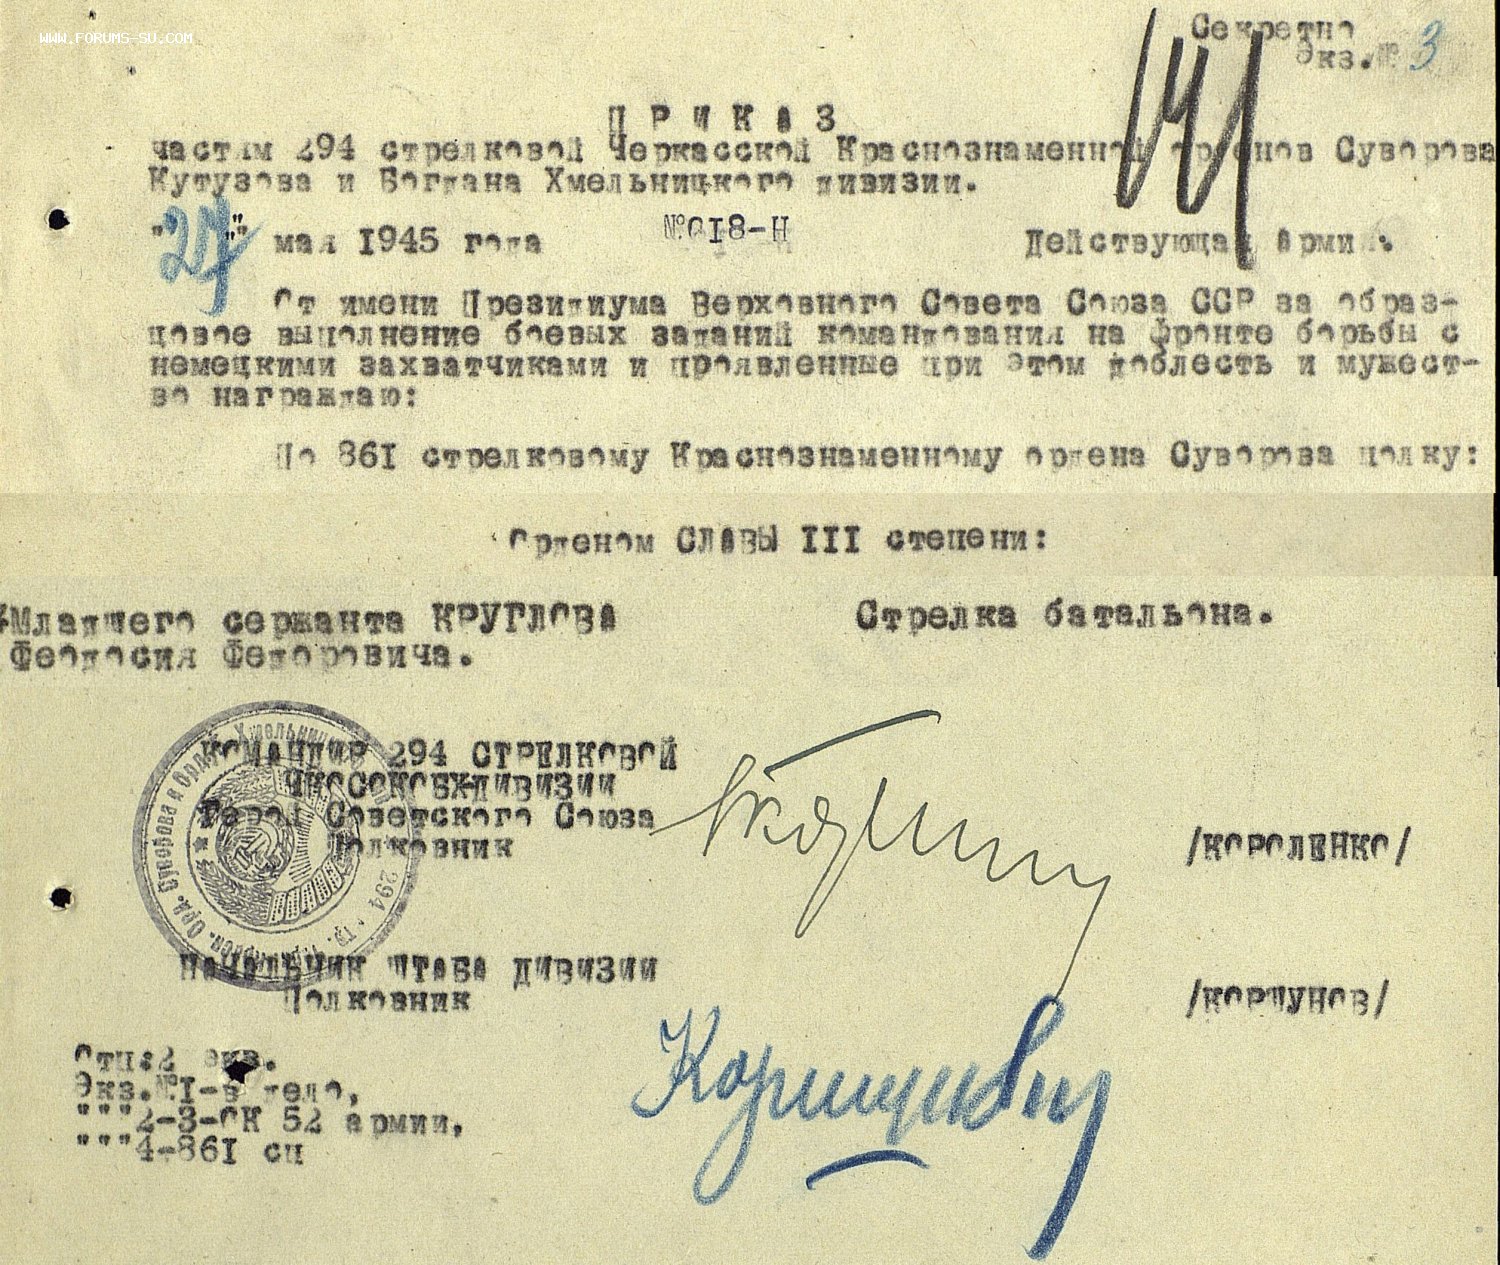 WWW.FORUMS-SU.COM
Секретно
Экз.№ 3
141
ПРИКАЗ
частям 294 стрелковой Черкасской Краснознаменной орденов Суворова
Кутузова и Богдана Хмельницкого дивизии.
"27" мая 1945 года №018-Н Действующая армия.
От имени Президиума Верховного Совета Союза ССР за образ-
цовое выполнение боевых заданий командования на фронте борьбы с
немецкими захватчиками и проявленные при этом доблесть и мужест-
во награждаю:
По 861 стрелковому Краснознаменному ордена Суворова полку:
Орденом СЛАВЫ III степени:
Младшего сержанта КРУГЛОВА Стрелка батальона.
Феодосия Федоровича.
КОМАНДИР 294 СТРЕЛКОВОЙ
ЧКОСОКОБХДИВИЗИИ
Герой Советского Союза
Полковник /КОРОЛЕНКО/
НАЧАЛЬНИК ШТАБА ДИВИЗИИ
Полковник /КОРШУНОВ/
Отп:2 экз.
Экз.№1-в дело,
"""2-3-ОК 52 армии,
"""4-861 сп